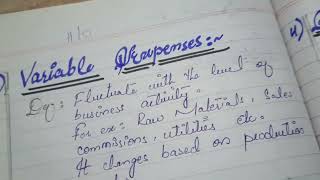 Variable Expenses:~
Def: Fluctuate with the level of
business activity.
For ex: Raw Materials, Sales
commissions, utilities etc.
It changes based on production